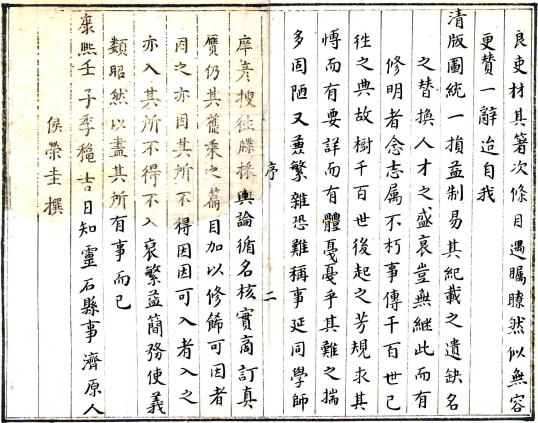 良吏材其箸次條目遇矚瞭然似無容
更贊一辭迨自我
清版圖統一損益制易其紀載之遺缺名
之替換人才之盛衰豈無繼此而有
修明者念志属不朽事傳千百世已
徃之典故樹千百世後起之芳規求其
愽而有要詳而有體戞憂乎其難之揣
多固陋又兼繁雜恐難稱事延同學師
序
二
庠彦搜徃牒採輿論循名核實商訂真
贋仍其舊乘之篇目加以修餙可因者
因之亦因其所不得因因可入者入之
亦入其所不得不入裒繁益簡務使義
類昭然以盡其所有事而已
康熙壬子季穐吉日知靈石縣事濟原人
侯榮圭撰